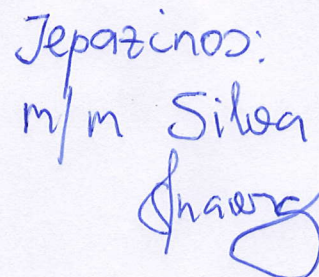 Iepazinos:
m/m Silva